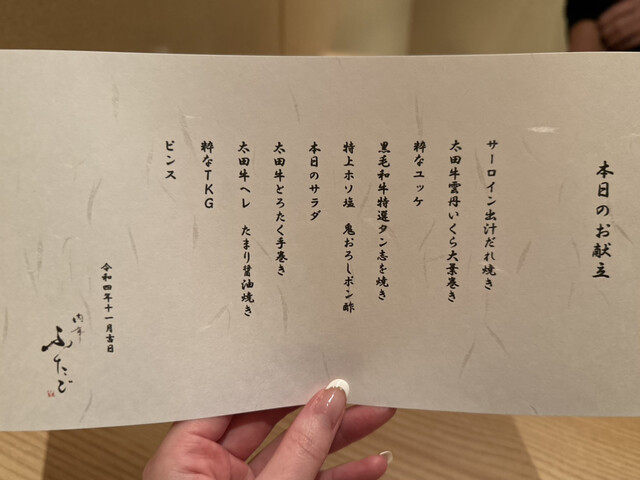 本日のお献立
サーロイン出汁だれ焼き
太田牛雲丹いくら大葉巻き
粋なユッケ
黒毛和牛特選タン志を焼き
特上ホソ塩 鬼おろしポン酢
本日のサラダ
太田牛とろたく手巻き
太田牛ヘレ たまり醤油焼き
粋なTKG
ピンス
令和四年十一月吉日
肉亭
ふたご